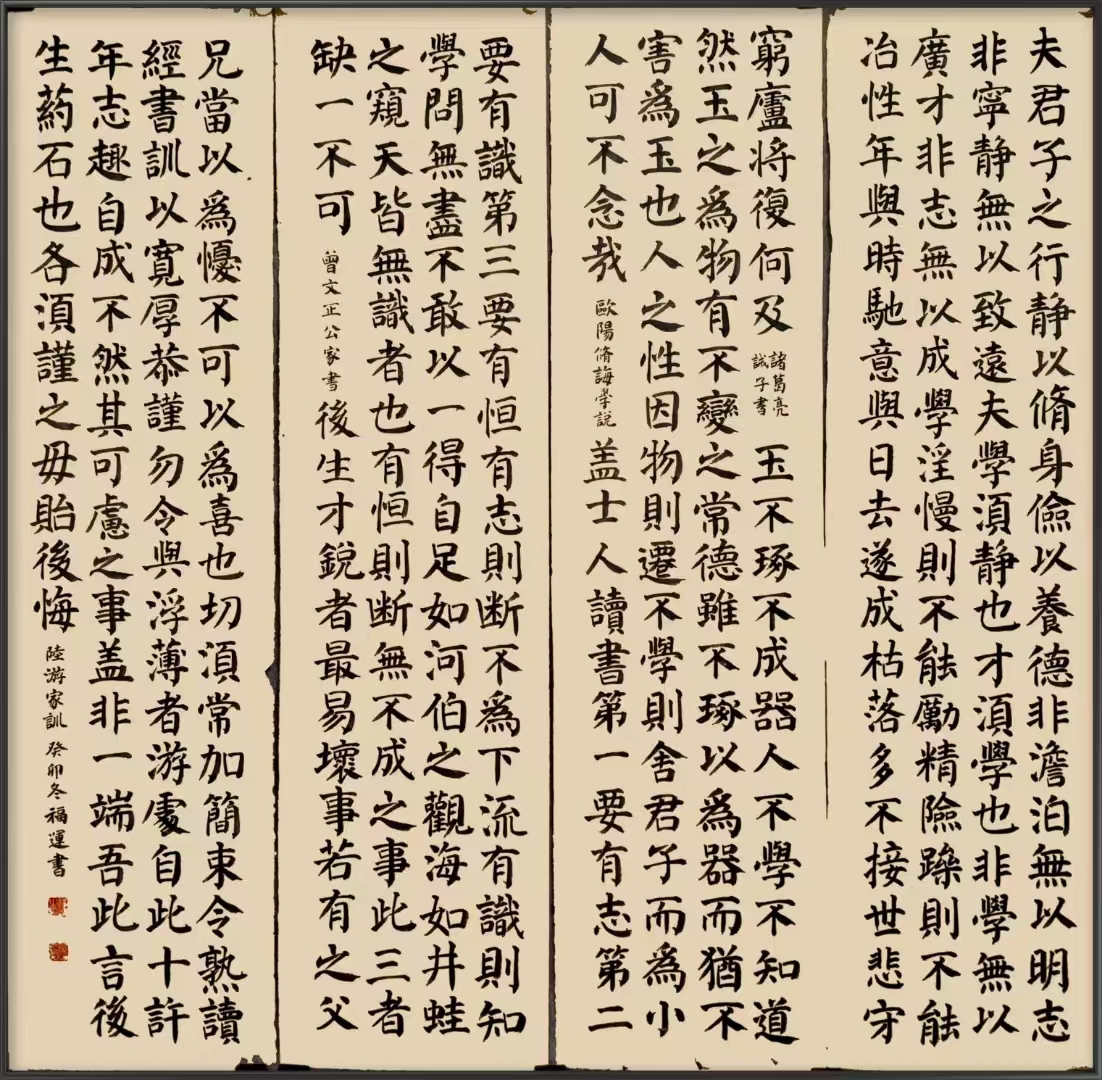 夫君子之行靜以脩身儉以養德非澹泊無以明志
非寧靜無以致遠夫學須靜也才須學也非學無以
廣才非志無以成學淫慢則不能勵精險躁則不能
冶性年與時馳意與日去遂成枯落多不接世悲守
窮廬将復何及 諸葛亮誡子書 玉不琢不成器人不學不知道
然玉之爲物有不變之常德雖不琢以爲器而猶不
害爲玉也人之性因物則遷不學則舍君子而爲小
人可不念哉 歐陽脩誨學説 盖士人讀書第一要有志第二
要有識第三要有恒有志則断不爲下流有識則知
學問無盡不敢以一得自足如河伯之觀海如井蛙
之窺天皆無識者也有恒則断無不成之事此三者
缺一不可 曾文正公家書 後生才銳者最易壞事若有之父
兄當以爲憂不可以爲喜也切須常加簡束令熟讀
經書訓以寬厚恭謹勿令與浮薄者游處自此十許
年志趣自成不然其可慮之事盖非一端吾此言後
生葯石也各須謹之毋貽後悔 陸游家訓 癸卯冬福運書